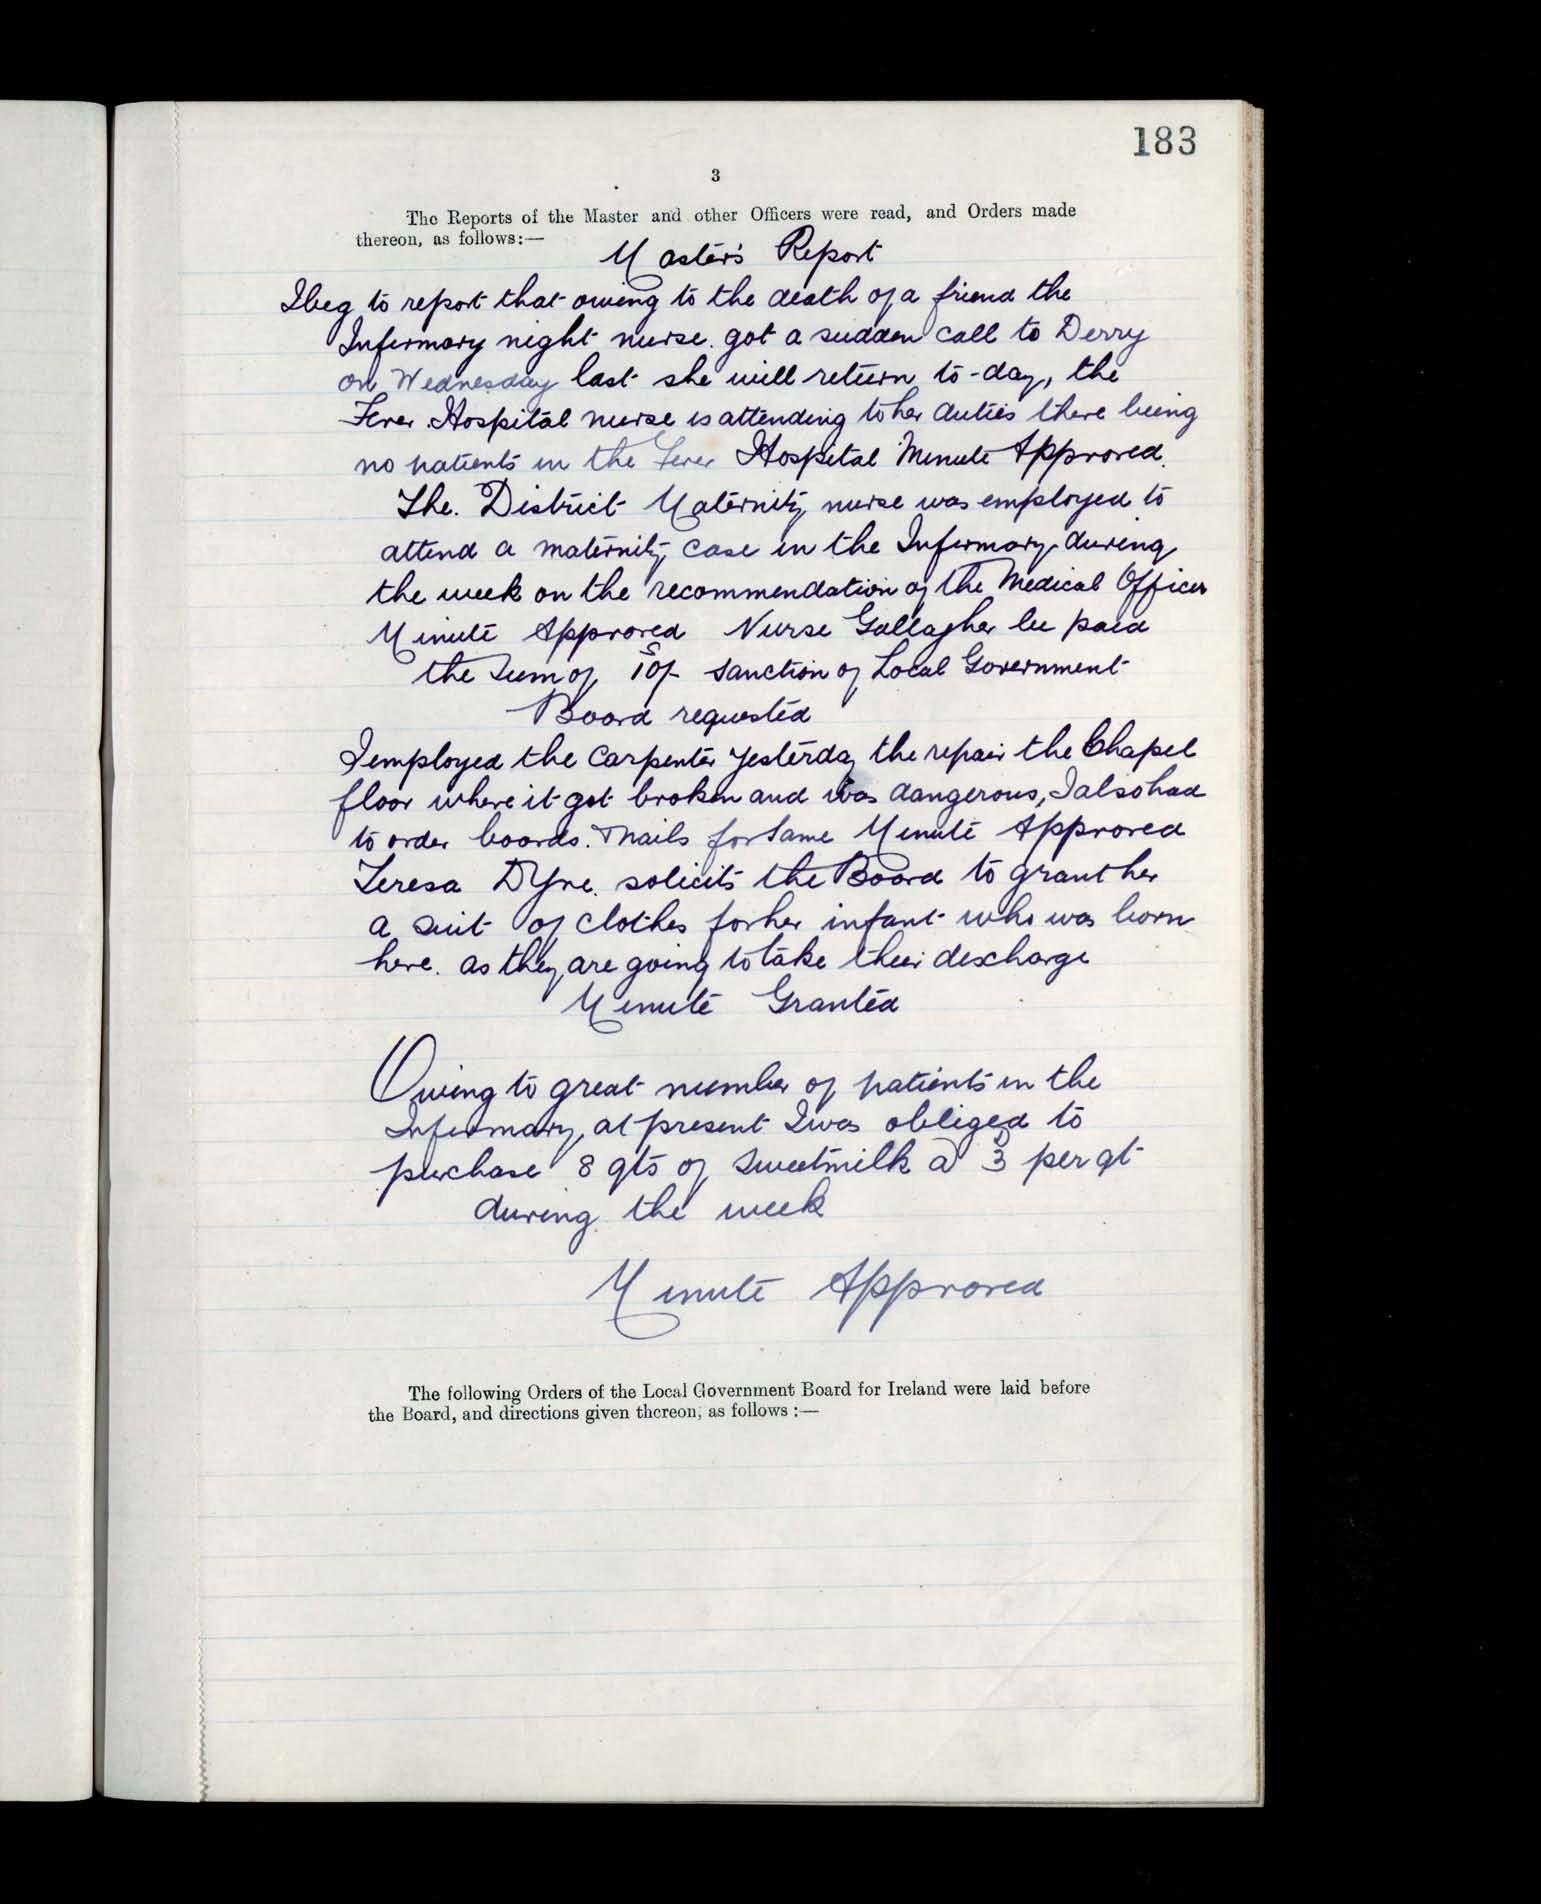 183
3
The Reports of the Master and other Officers were read, and Orders made
thereon, as follows:—
Master's Report
I beg to report that owing to the death of a friend the
Infirmary night nurse. got a sudden call to Derry
on Wednesday last she will return to-day, the
Fever Hospital nurse is attending to her duties there being
no patients in the Fever Hospital Minute Approved.
The. District Maternity nurse was employed to
attend a maternity case in the Infirmary during
the week on the recommendation of the Medical Officer
Minute Approved Nurse Gallagher be paid
the sum of 10/- sanction of Local Government
Board requested
I employed the carpenter yesterday the repair the Chapel
floor where it got broken and was dangerous, I also had
to order boards. & nails for same Minute Approved
Teresa solicits the Board to grant her
a suit of clothes for her infant who was born
here. as they are going to take their discharge
Minute Granted
Owing to great number of patients in the
Infirmary, at present I was obliged to
purchase 8 qts of sweetmilk @ 3D per qt
during the week
Minute Approved
The following Orders of the Local Government Board for Ireland were laid before
the Board, and directions given thereon, as follows :—